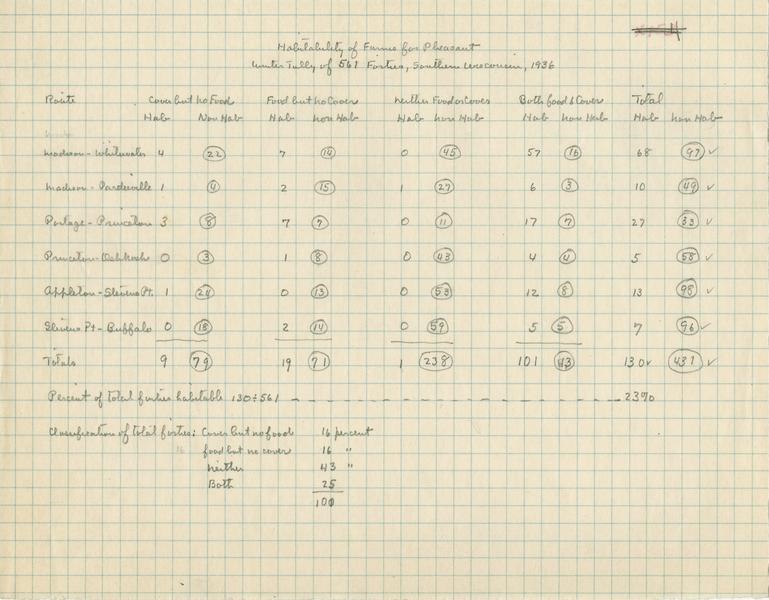 Habitability of Farms for Pheasant
Winter Tally of 561 Forties, Southern Wisconsin, 1936
Route Cover but no Food Food but no Cover Neither Food or Cover Both food & Cover Total
Hab Non Hab Hab Non Hab Hab Non Hab Hab Non Hab Hab Non Hab
Madison - Whitewater 4 22 7 14 0 45 57 16 68 97 ✓
Madison - Pardeeville 1 4 2 15 1 27 6 3 10 49 ✓
Portage - Princeton 3 8 7 7 0 11 17 7 27 33 ✓
Princeton - Oshkosh 0 3 1 8 0 43 4 4 5 58 ✓
Appleton - Stevens Pt. 1 24 0 13 0 53 12 8 13 98 ✓
Stevens Pt - Buffalo 0 18 2 14 0 59 5 5 7 96 ✓
Totals 9 79 19 71 1 238 101 43 130 ✓ 431 ✓
Percent of total forties habitable 130 ÷ 561 - - - - - - - - - - - - - - - 23%
Classification of total forties: Cover but no food 16 percent
food but no cover 16 "
Neither 43 "
Both 25
100